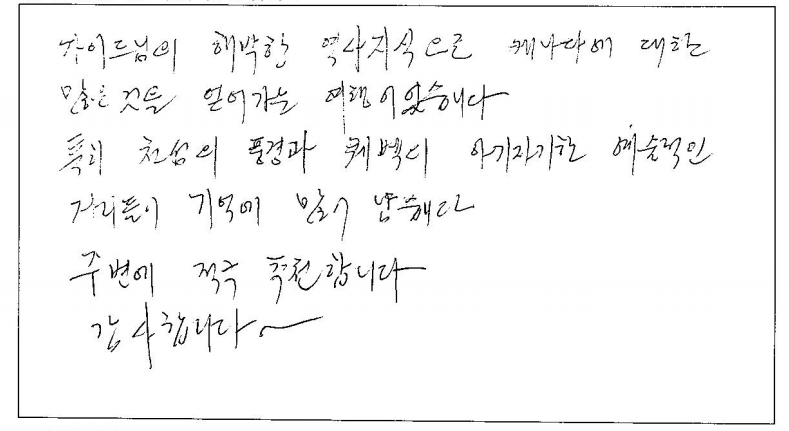 가이드님의 해박한 역사지식으로 케나다에 대한
많은것들 얻어가는 여행이었습니다
특히 천섬의 풍경과 퀘벡의 아기자기한 예술적인
거리들이 기억에 많이 남습니다
주변에 적극 추천합니다
감사합니다~